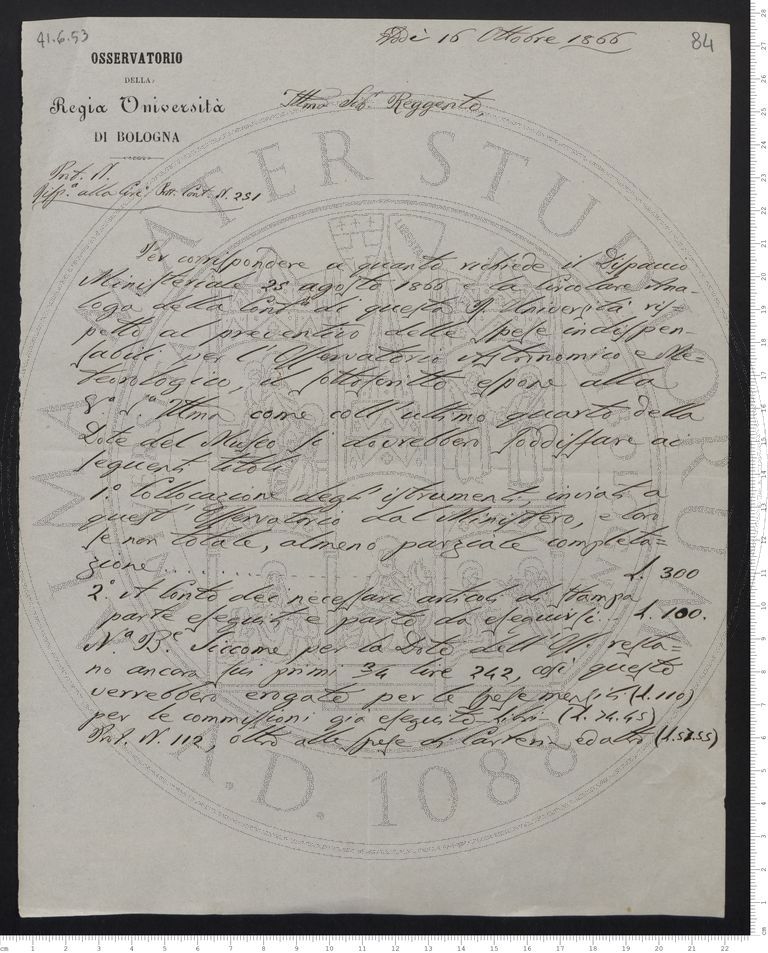 41.6.53
Addì 16 Ottobre 1866
84
OSSERVATORIO
DELLA
Regia Università
DI BOLOGNA
Prot. N.
Risp.a alla Circ. Prot. Cont. N. 251
Illmo Sigr. Reggente,
Per corrispondere a quanto richiede il Dispaccio
Ministeriale 25 agosto 1866 e la Circolare ana-
loga della Cont. di questa R. Università ris-
petto al preventivo delle spese indispen-
sabili per l'Osservatorio Astronomico e Me=
teorologico, il sottoscritto espone alla
S.a V.a Illma come coll'ultimo quarto della
Dote del Museo si dovrebbero soddisfare ai
seguenti titoli
1.o Collocazione degl'istrumenti, inviati a
quest'Osservatorio dal Ministero, e loro
se non totale, almeno parziale completa=
zione . . . . . . . . . . . . . . . . L. 300
2.o A Conto dei necessari articoli di stampa
parte eseguiti e parte da eseguirsi . . L. 100.
N.a B.e Siccome per la Dote dell'Oss. resta=
no ancora sui primi 3/4 lire 242, così questo
verrebbero erogate per le spese mensili (L. 110)
per le commissioni già eseguite libri (L. 74.45)
Prot. N. 112, oltre alle spese di Carteria ed altro (L. 57.55)
ALMA MATER STUDIORUM
A.D. 1088